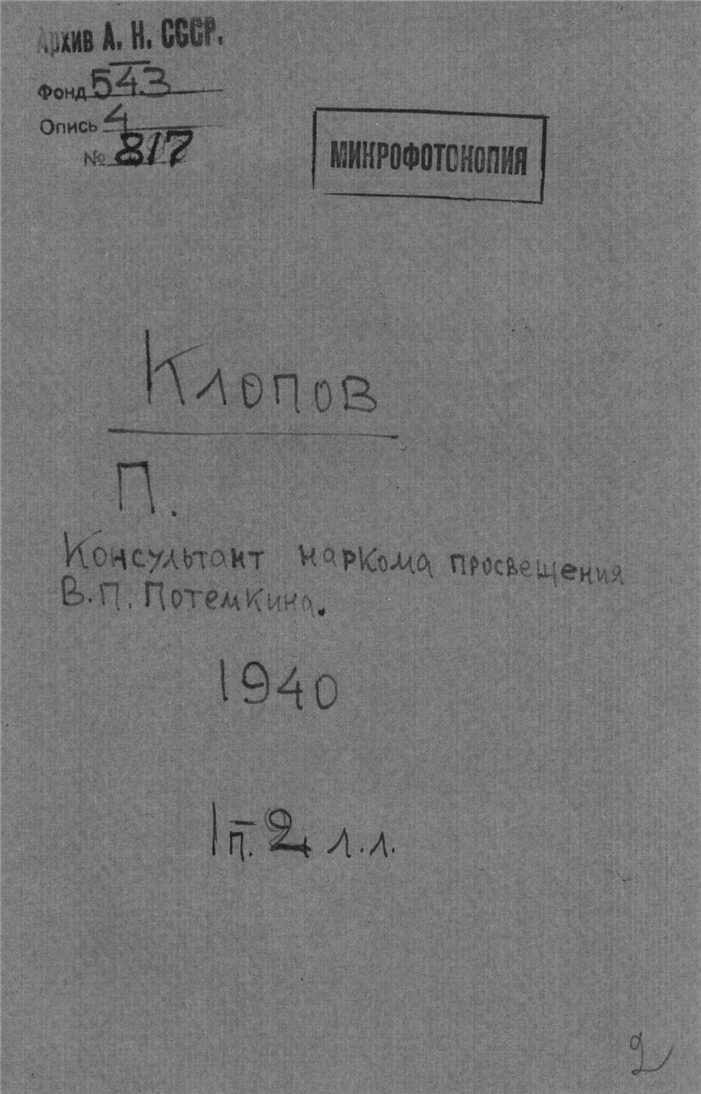 Архив А. Н. СССР.
Фонд 543
Опись 4
№ 817
МИКРОФОТОКОПИЯ
Клопов
П.
Консультант наркома просвещения
В.П. Потемкина.
1940
1 п. 2 л.л.
2